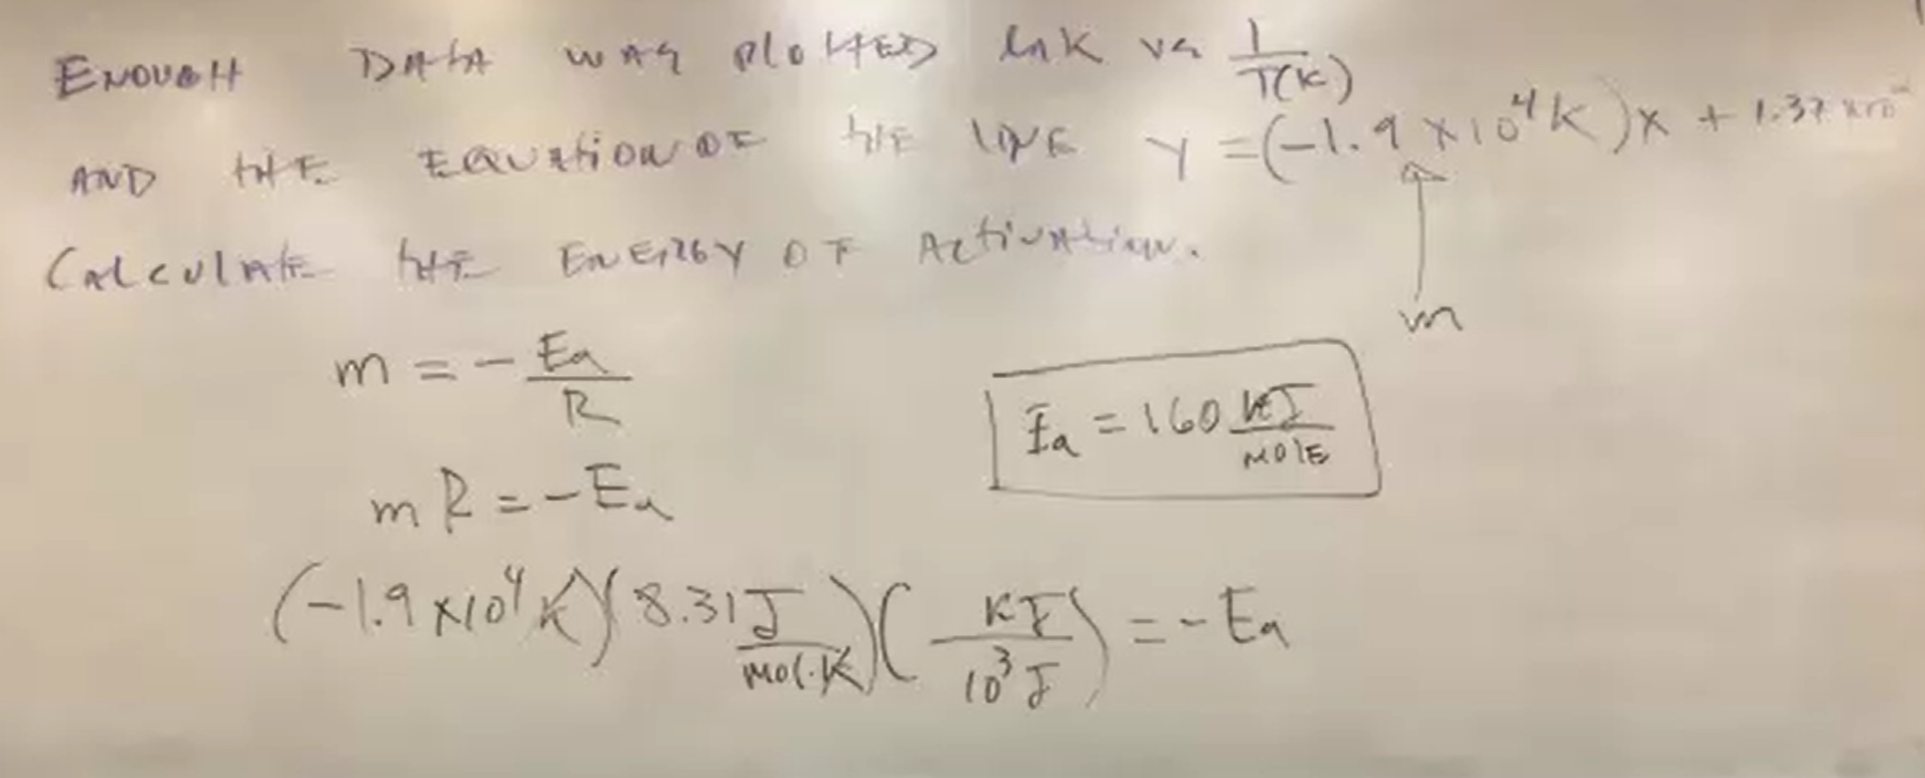 ENOUGH DATA WAS PLOTTED lnK vs 1/T(K)
AND THE EQUATION OF THE LINE Y = (-1.9 x 10^4 K)x + 1.37 x10
CALCULATE THE ENERGY OF ACTIVATION.
m
m = - Ea/R
Ea = 160 KJ/MOLE
mR = -Ea
(-1.9 x10^4 K)(8.31 J/mol·K)(KJ/10^3 J) = -Ea